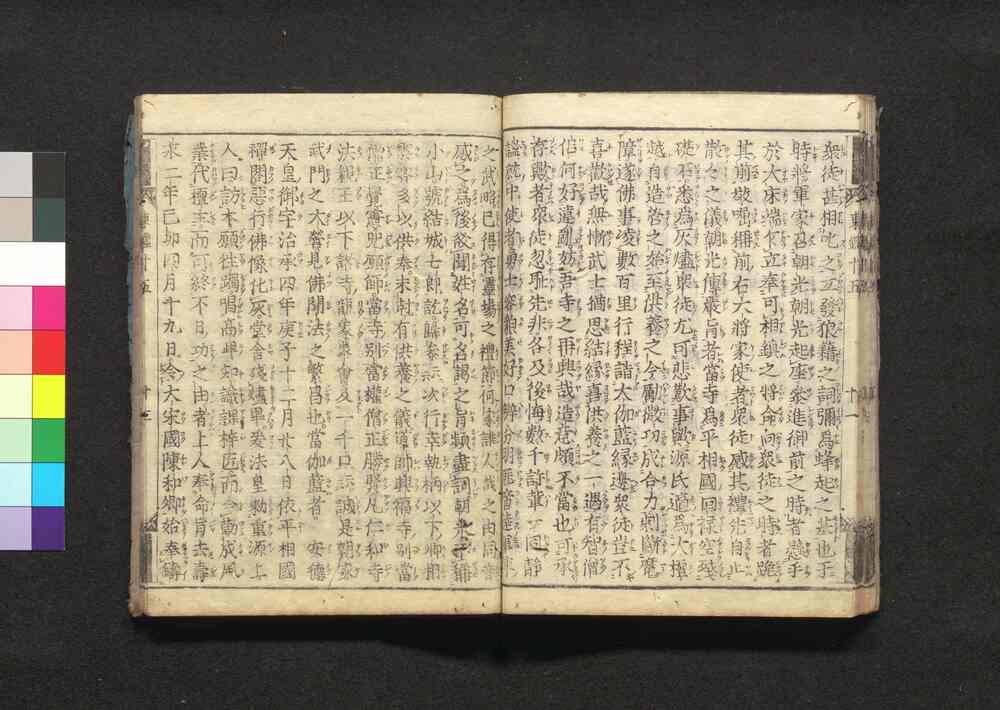 衆徒甚相叱之互發狼藉之詞彌爲蜂起之基也于
時將軍家召朝光朝光起座參進御前之時者懸手
於大床端乍立奉可相鎭之將命向衆徒之時者跪
其前敬屈稱前右大將家使者衆徒感其禮先自止
嗷々之儀朝光傳嚴旨者當寺爲平相國回祿空殘
礎石悉爲灰燼衆徒尤可悲歎事歟源氏適爲大檀
越自造營之始至供養之今勵微功成合力剩斷魔
障遂佛事凌數百里行程詣大伽藍縁邊衆徒豈不
喜歡哉無慚武士猶思結縁喜洪養之一遇有智僧
侶何好違亂妨吾寺之再興哉造意頗不當也可承
存歟者衆徒忽耻先非各及後悔數千許輩一同靜
謐就中使者勇士容貌美好口辨分明匪啻達軍
之武略已得存靈場之禮節何家誰人哉之由同音
感之爲後欲聞姓名可名謁之旨頻盡詞朝光不稱
小山號結城七郎訖歸參云云次行幸執柄以下卿相
雲客多以供奉未剋有供養之儀導師興福寺別當
僧正覺憲呪願師當寺別當權僧正勝賢凡仁和寺
法親王以下諸寺龍象衆會及一千口云云誠是朝家
武門之大營見佛聞法之繁昌也當伽藍者 安德
天皇御宇治承四年庚子十二月廿八日依平相國
禪閤惡行佛像化灰堂舍殘燼畢爰法皇勅重源上
人曰訪本願往躅唱高卑知識課梓匠而令勸成風
業代檀主而可終不日功之由者上人奉命旨去壽
永二年己卯四月十九日令大宋國陳和卿始奉鑄
東鑑十五
十二